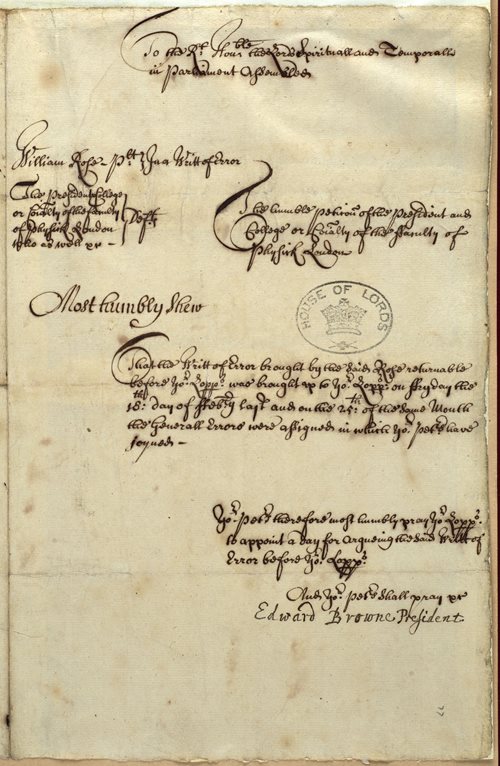 To the Rt. Honble. the Lords Spirituall and Temporall
in Parliament Assembled
William Rose - Plt. In a Writt of Error
The President College
or Comlty of the faculty
of Physick London
who as well &c -
Defts
The humble peticon of the President and
College or Comlty of the ffaculty of
Physick London
Most humbly Shew
HOUSE OF LORDS
That the Writt of Error brought by the said Rose returnable
before Yor. Lopps. was brought up to Yor. Lopps. on ffryday the
18th. day of ffebry last and on the 21th. of the same Month
the Generall Errors were assigned in which Yor. Petrs have
joyned -
Yor. Petrs therefore most humbly pray Yor. Lopps.
to appoint a day for argueing the said Writt of
Error before Yor. Lopps.
And Yor. Petrs shall pray &c
Edward Browne President